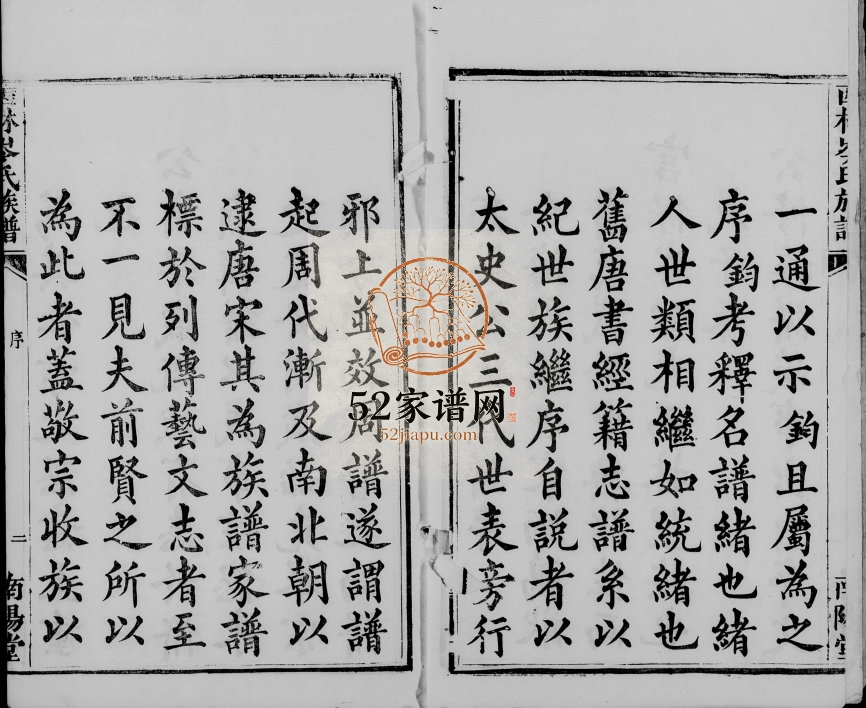 一通以示鈞且屬為之
序鈞考釋名譜緒也緒
人世類相繼如統緒也
舊唐書經籍志譜系以
紀世族繼序自說者以
太史公三代世表旁行
邪上並效周譜遂謂譜
起周代漸及南北朝以
逮唐宋其為族譜家譜
標於列傳藝文志者至
不一見夫前賢之所以
為此者蓋敬宗收族以
林岑氏族譜
序
二
南陽堂
52家谱网
52jiapu.com